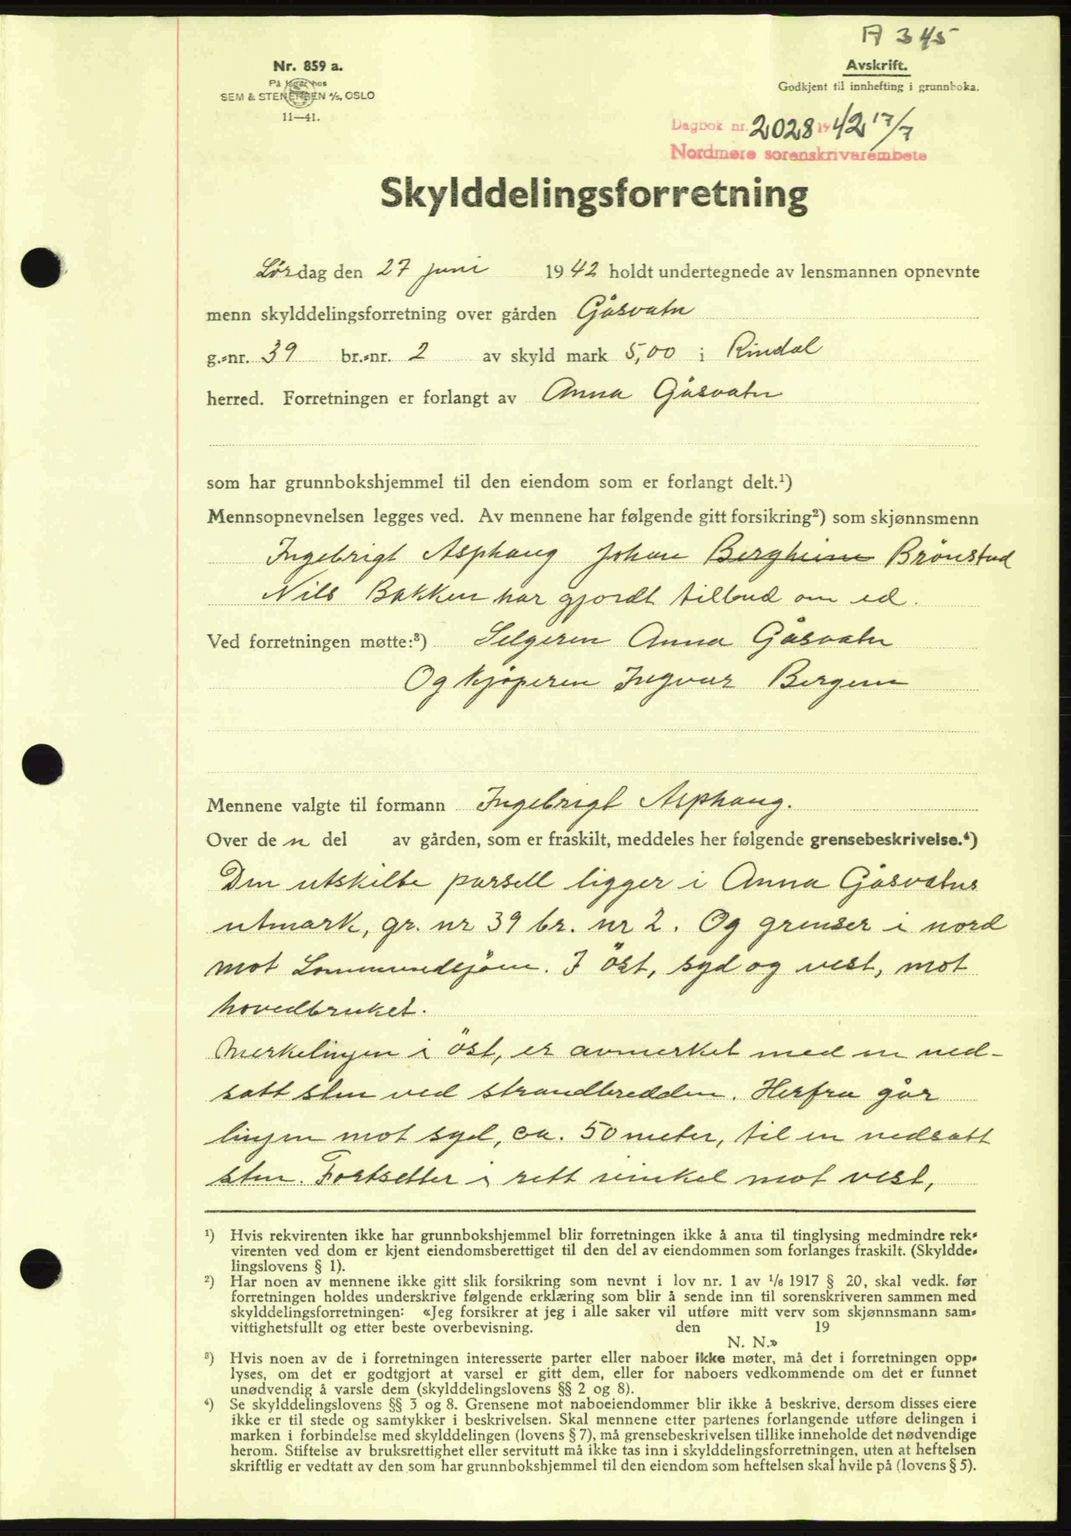 A 345
Nr. 859 a.
På lager hos
SEM & STENERSEN A/S, OSLO
11—41.
Avskrift.
Godkjent til innhefting i grunnboka.
Dagbok nr. 2028 1942 17/7
Nordmøre sorenskriverembete
Skylddelingsforretning
Lørdag den 27 juni 1942 holdt undertegnede av lensmannen opnevnte
menn skylddelingsforretning over gården Gåsvatn
g.-nr. 39 br.-nr. 2 av skyld mark 5,00 i Rindal
herred. Forretningen er forlangt av Anna Gåsvatn
som har grunnbokshjemmel til den eiendom som er forlangt delt.¹)
Mennsopnevnelsen legges ved. Av mennene har følgende gitt forsikring²) som skjønnsmenn
Ingebrigt Asphaug Johan Bergheim Brønstad
Nils Bakken har gjordt tilbud om ed.
Ved forretningen møtte:³) Selgeren Anna Gåsvatn
Og kjøperen Ingvar Bergem
Mennene valgte til formann Ingebrigt Asphaug.
Over den del av gården, som er fraskilt, meddeles her følgende grensebeskrivelse.⁴)
Den utskilte parsell ligger i Anna Gåsvatns
utmark, gr. nr 39 br. nr 2. Og grenser i nord
mot Lommundsjøen. I öst, syd og vest, mot
hovedbruket.
Merkelinjen i öst, er avmerket med en ned-
satt sten ved strandbredden. Herfra går
linjen mot syd, ca. 50 meter, til en nedsatt
sten. Fortsetter i rett vinkel mot vest,
¹) Hvis rekvirenten ikke har grunnbokshjemmel blir forretningen ikke å anta til tinglysing medmindre rek-
virenten ved dom er kjent eiendomsberettiget til den del av eiendommen som forlanges fraskilt. (Skyldde-
lingslovens § 1).
²) Har noen av mennene ikke gitt slik forsikring som nevnt i lov nr. 1 av 1/6 1917 § 20, skal vedk. før
forretningen holdes underskrive følgende erklæring som blir å sende inn til sorenskriveren sammen med
skylddelingsforretningen: «Jeg forsikrer at jeg i alle saker vil utføre mitt verv som skjønnsmann sam-
vittighetsfullt og etter beste overbevisning. den 19
N. N.»
³) Hvis noen av de i forretningen interesserte parter eller naboer ikke møter, må det i forretningen opp-
lyses, om det er godtgjort at varsel er gitt dem, eller for naboers vedkommende om det er funnet
unødvendig å varsle dem (skylddelingslovens §§ 2 og 8).
⁴) Se skylddelingslovens §§ 3 og 8. Grensene mot naboeiendommer blir ikke å beskrive, dersom disses eiere
ikke er til stede og samtykker i beskrivelsen. Skal mennene etter partenes forlangende utføre delingen i
marken i forbindelse med skylddelingen (lovens § 7), må grensebeskrivelsen tillike inneholde det nødvendige
herom. Stiftelse av bruksrettighet eller servitutt må ikke tas inn i skylddelingsforretningen, uten at heftelsen
skriftlig er vedtatt av den som har grunnbokshjemmel til den eiendom som heftelsen skal hvile på (lovens § 5).